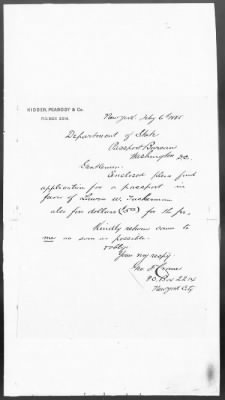 KIDDER, PEABODY & Co.
P.O. BOX 2214.
New York. July 6th 1885
Department of State
Passport Bureau
Washington DC.
Gentlemen.
Enclosed please find
application for a passport in
favor of Lucius W. Tuckerman
also five dollars ($5.00) for the fee.
Kindly return same to
me as soon as possible.
Your very respy
Geo F Crane
P.O. Box 2214
New York City